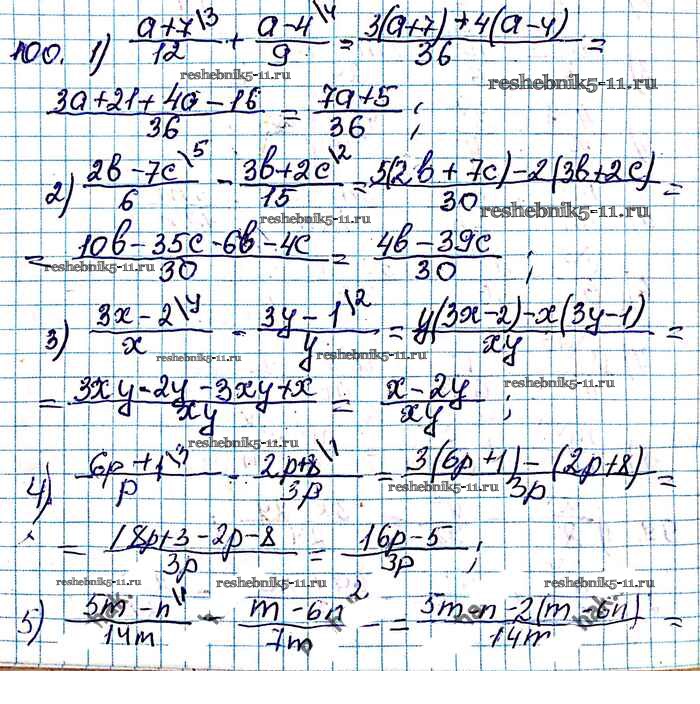 100. 1) (a+7\3)/12 + (a-4\4)/9 = (3(a+7)+4(a-4))/36 =
reshebnik5-11.ru reshebnik5-11.ru
(3a+21+4a-16)/36 = (7a+5)/36 ;
reshebnik5-11.ru
2) (2b-7c\5)/6 - (3b+2c\2)/15 = (5(2b+7c)-2(3b+2c))/30 =
reshebnik5-11.ru reshebnik5-11.ru
= (10b-35c-6b-4c)/30 = (4b-39c)/30 ;
reshebnik5-11.ru reshebnik5-11.ru
3) (3x-2\y)/x - (3y-1\2)/y = (y(3x-2)-x(3y-1))/xy =
reshebnik5-11.ru reshebnik5-11.ru
= (3xy-2y-3xy+x)/xy = (x-2y)/xy ;
reshebnik5-11.ru
4) (6p+1\3)/p - (2p+8\1)/3p = (3(6p+1)-(2p+8))/3p =
reshebnik5-11.ru
= (18p+3-2p-8)/3p = (16p-5)/3p ;
reshebnik5-11.ru reshebnik5-11.ru reshebnik5-11.ru
5) (5m-n\1)/14m - (m-6n 2)/7m = (5m-n-2(m-6n))/14m =